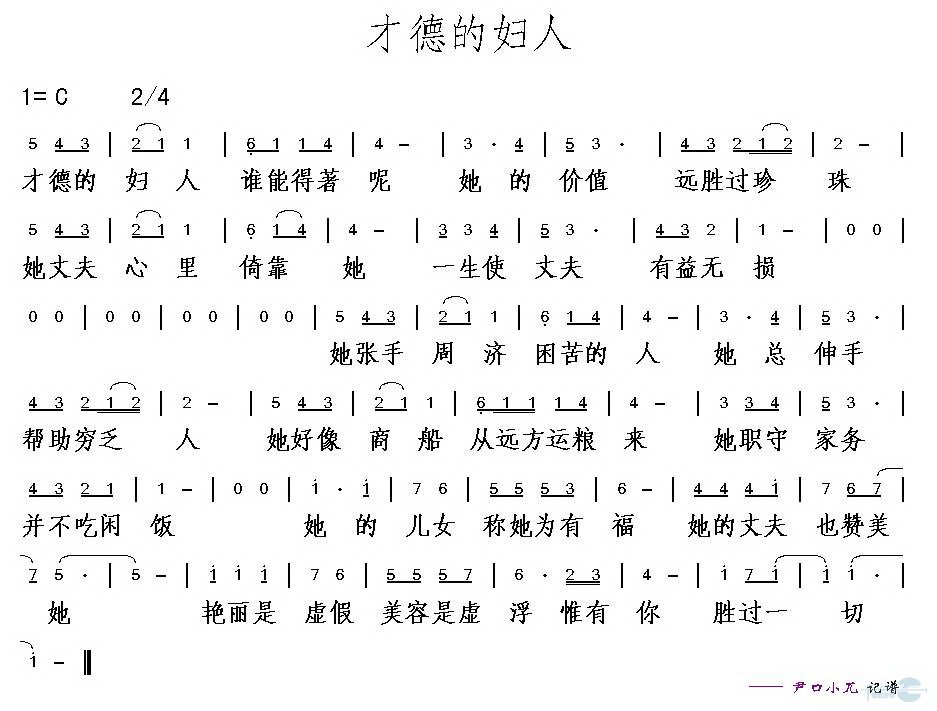 才德的妇人
1= C 2/4
5 4 3 | 2 1 1 | 6 1 1 4 | 4 – | 3 · 4 | 5 3 · | 4 3 2 1 2 | 2 – |
才德的 妇 人 谁能得著 呢 她 的 价值 远胜过珍 珠
5 4 3 | 2 1 1 | 6 1 4 | 4 – | 3 3 4 | 5 3 · | 4 3 2 | 1 – | 0 0 |
她丈夫 心 里 倚靠 她 一生使 丈夫 有益无 损
0 0 | 0 0 | 0 0 | 0 0 | 5 4 3 | 2 1 1 | 6 1 4 | 4 – | 3 · 4 | 5 3 · |
她张手 周 济 困苦的 人 她 总 伸手
4 3 2 1 2 | 2 – | 5 4 3 | 2 1 1 | 6 1 1 1 4 | 4 – | 3 3 4 | 5 3 · |
帮助穷乏 人 她好像 商 船 从远方运粮 来 她职守 家务
4 3 2 1 | 1 – | 0 0 | 1 · 1 | 7 6 | 5 5 5 3 | 6 – | 4 4 4 1 | 7 6 7 |
并不吃闲 饭 她 的 儿女 称她为有 福 她的丈夫 也赞美
7 5 · | 5 – | 1 1 1 | 7 6 | 5 5 5 7 | 6 · 2 3 | 4 – | 1 7 1 | 1 1 · |
她 艳丽是 虚假 美容是虚 浮 惟有 你 胜过一 切
1 –
—— 尹口小兀 记谱